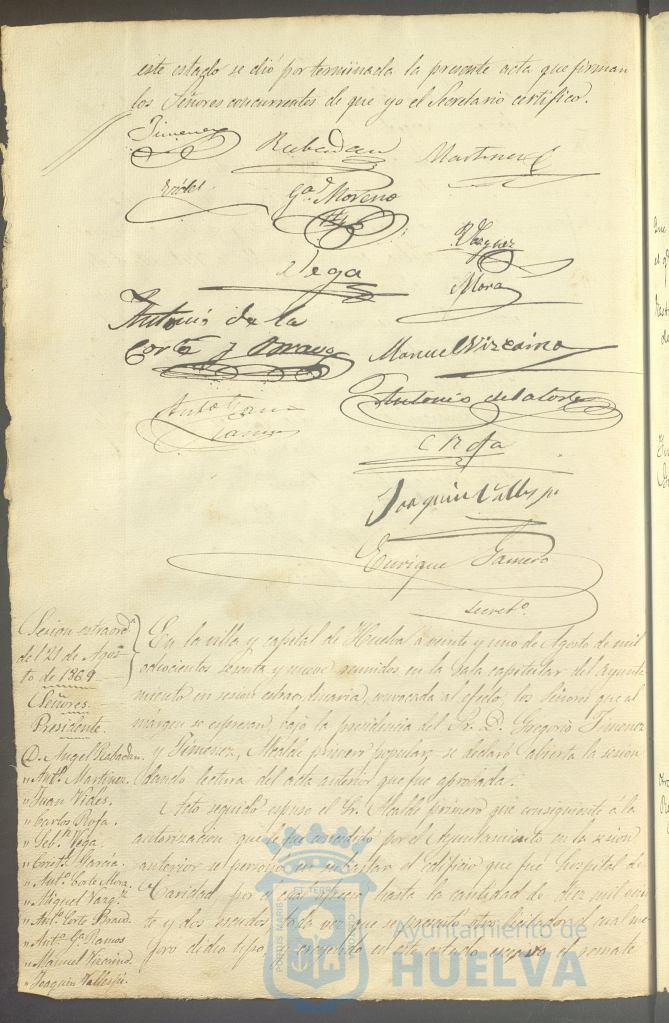 este estado se dió por terminada la presente acta que firman
los Señores concurrentes de que yo el Secretario certifico.
Jimenez Rabadan Martinez
Vides Gª Moreno
Vazquez
Vega
Mora
Antonio de la
Corte y Bravo
Manuel Vizcaino
Antonio de la Corte
Ramos
C Rofa
Joaquin Vallespi
Enrique Gamero
Secretº
Sesion extraordª
del 21 de Agos
to de 1869
Señores.
Presidente.
D. Angel Rabadan.
" Antº Martinez.
" Juan Vides.
" Carlos Rofa.
" Sebⁿ Vega.
" García.
" Antº Corte Mora.
" Miguel Vazqz
" Antº Corte Bravo.
" Antº Gª Ramos
" Manuel Vizcaino.
" Joaquin Vallespi.
En la villa y capital de Huelva á veinte y uno de Agosto de mil
ochocientos sesenta y nueve reunidos en la Sala capitular del Ayunta
miento en sesion extraordinaria, convocada al efecto, los Señores que al
márgen se espresan bajo la presidencia del Sr. D. Gregorio Jimenez
y Jimenez, Alcalde primero popular, se declaró abierta la sesion
dando lectura del acta anterior que fue aprobada.
Acto seguido espuso el Sr. Alcalde primero que consiguiente á la
autorizacion que le fue concedida por el Ayuntamiento en la sesion
anterior se personó en subastar el edificio que fué hospital de
Caridad por el cual ofreció hasta la cantidad de diez mil vein
te y dos escudos toda vez que se presentó otro licitador el cual me
joró dicho tipo y creyendo en este estado el remate
ET TERRE
PORTUS MARIS
Ayuntamiento de
HUELVA